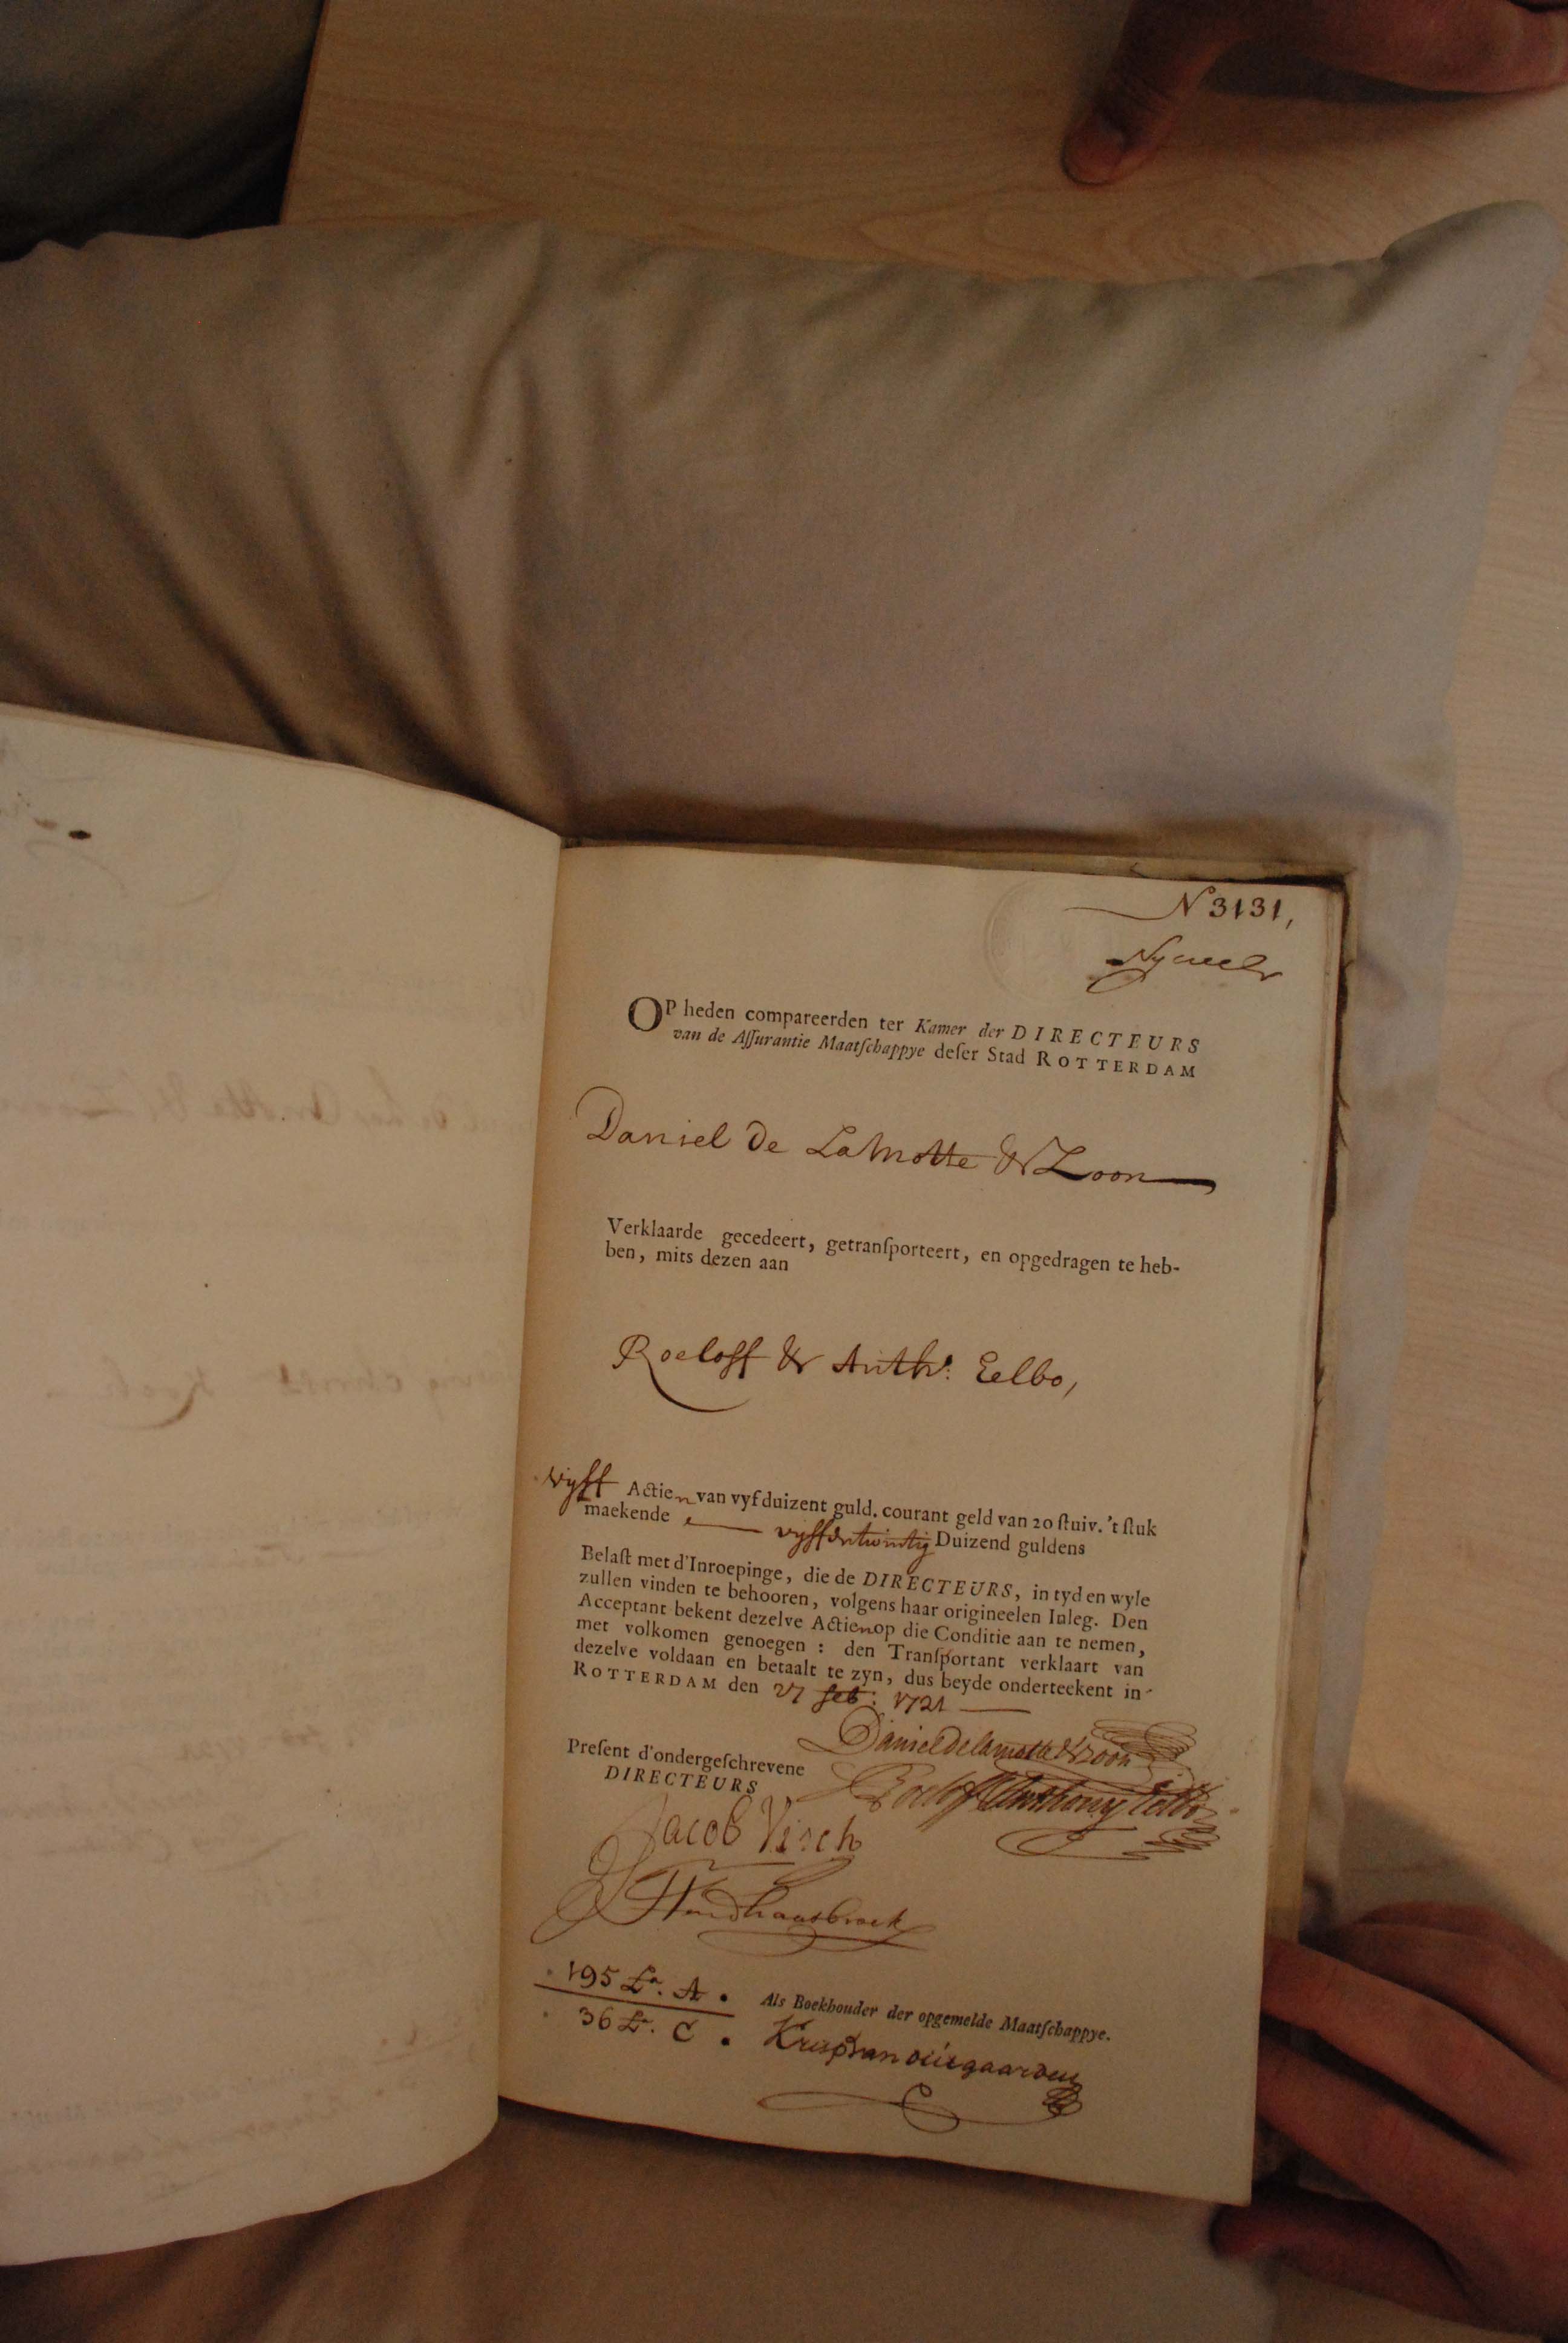 N 3131,
OP heden compareerden ter Kamer der DIRECTEURS
van de Aſſurantie Maatſchappye deſer Stad ROTTERDAM
Daniel De LaMotte & Zoon
Verklaarde gecedeert, getranſporteert, en opgedragen te heb-
ben, mits dezen aan
Roeloff & Anth: Eelbo,
vyff Actien van vyfduizent guld. courant geld van 20 ſtuiv. 't ſtuk
maekende vyffentwintig Duizend guldens
Belaſt met d'Inroepinge, die de DIRECTEURS, in tyd en wyle
zullen vinden te behooren, volgens haar origineelen Inleg. Den
Acceptant bekent dezelve Actien op die Conditie aan te nemen,
met volkomen genoegen : den Tranſportant verklaart van
dezelve voldaan en betaalt te zyn, dus beyde onderteekent in
ROTTERDAM den 27 feb: 1721
Daniel de lamotte & zoon
Preſent d'ondergeſchrevene
DIRECTEURS
Roeloff & Anthony Eelbo
Jacob Visch
195 La. A.
Als Boekhouder der opgemelde Maatſchappye.
36 La. C.